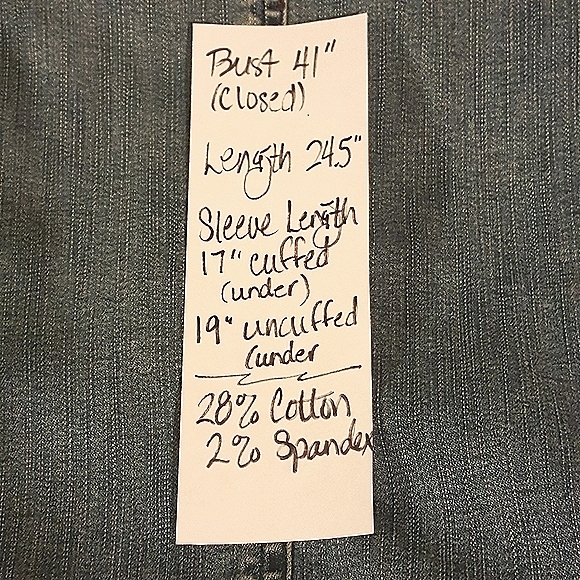 Bust 41"
(closed)
Length 24.5"
Sleeve Length
17" cuffed
(under)
19" uncuffed
(under
28% Cotton
2% Spandex